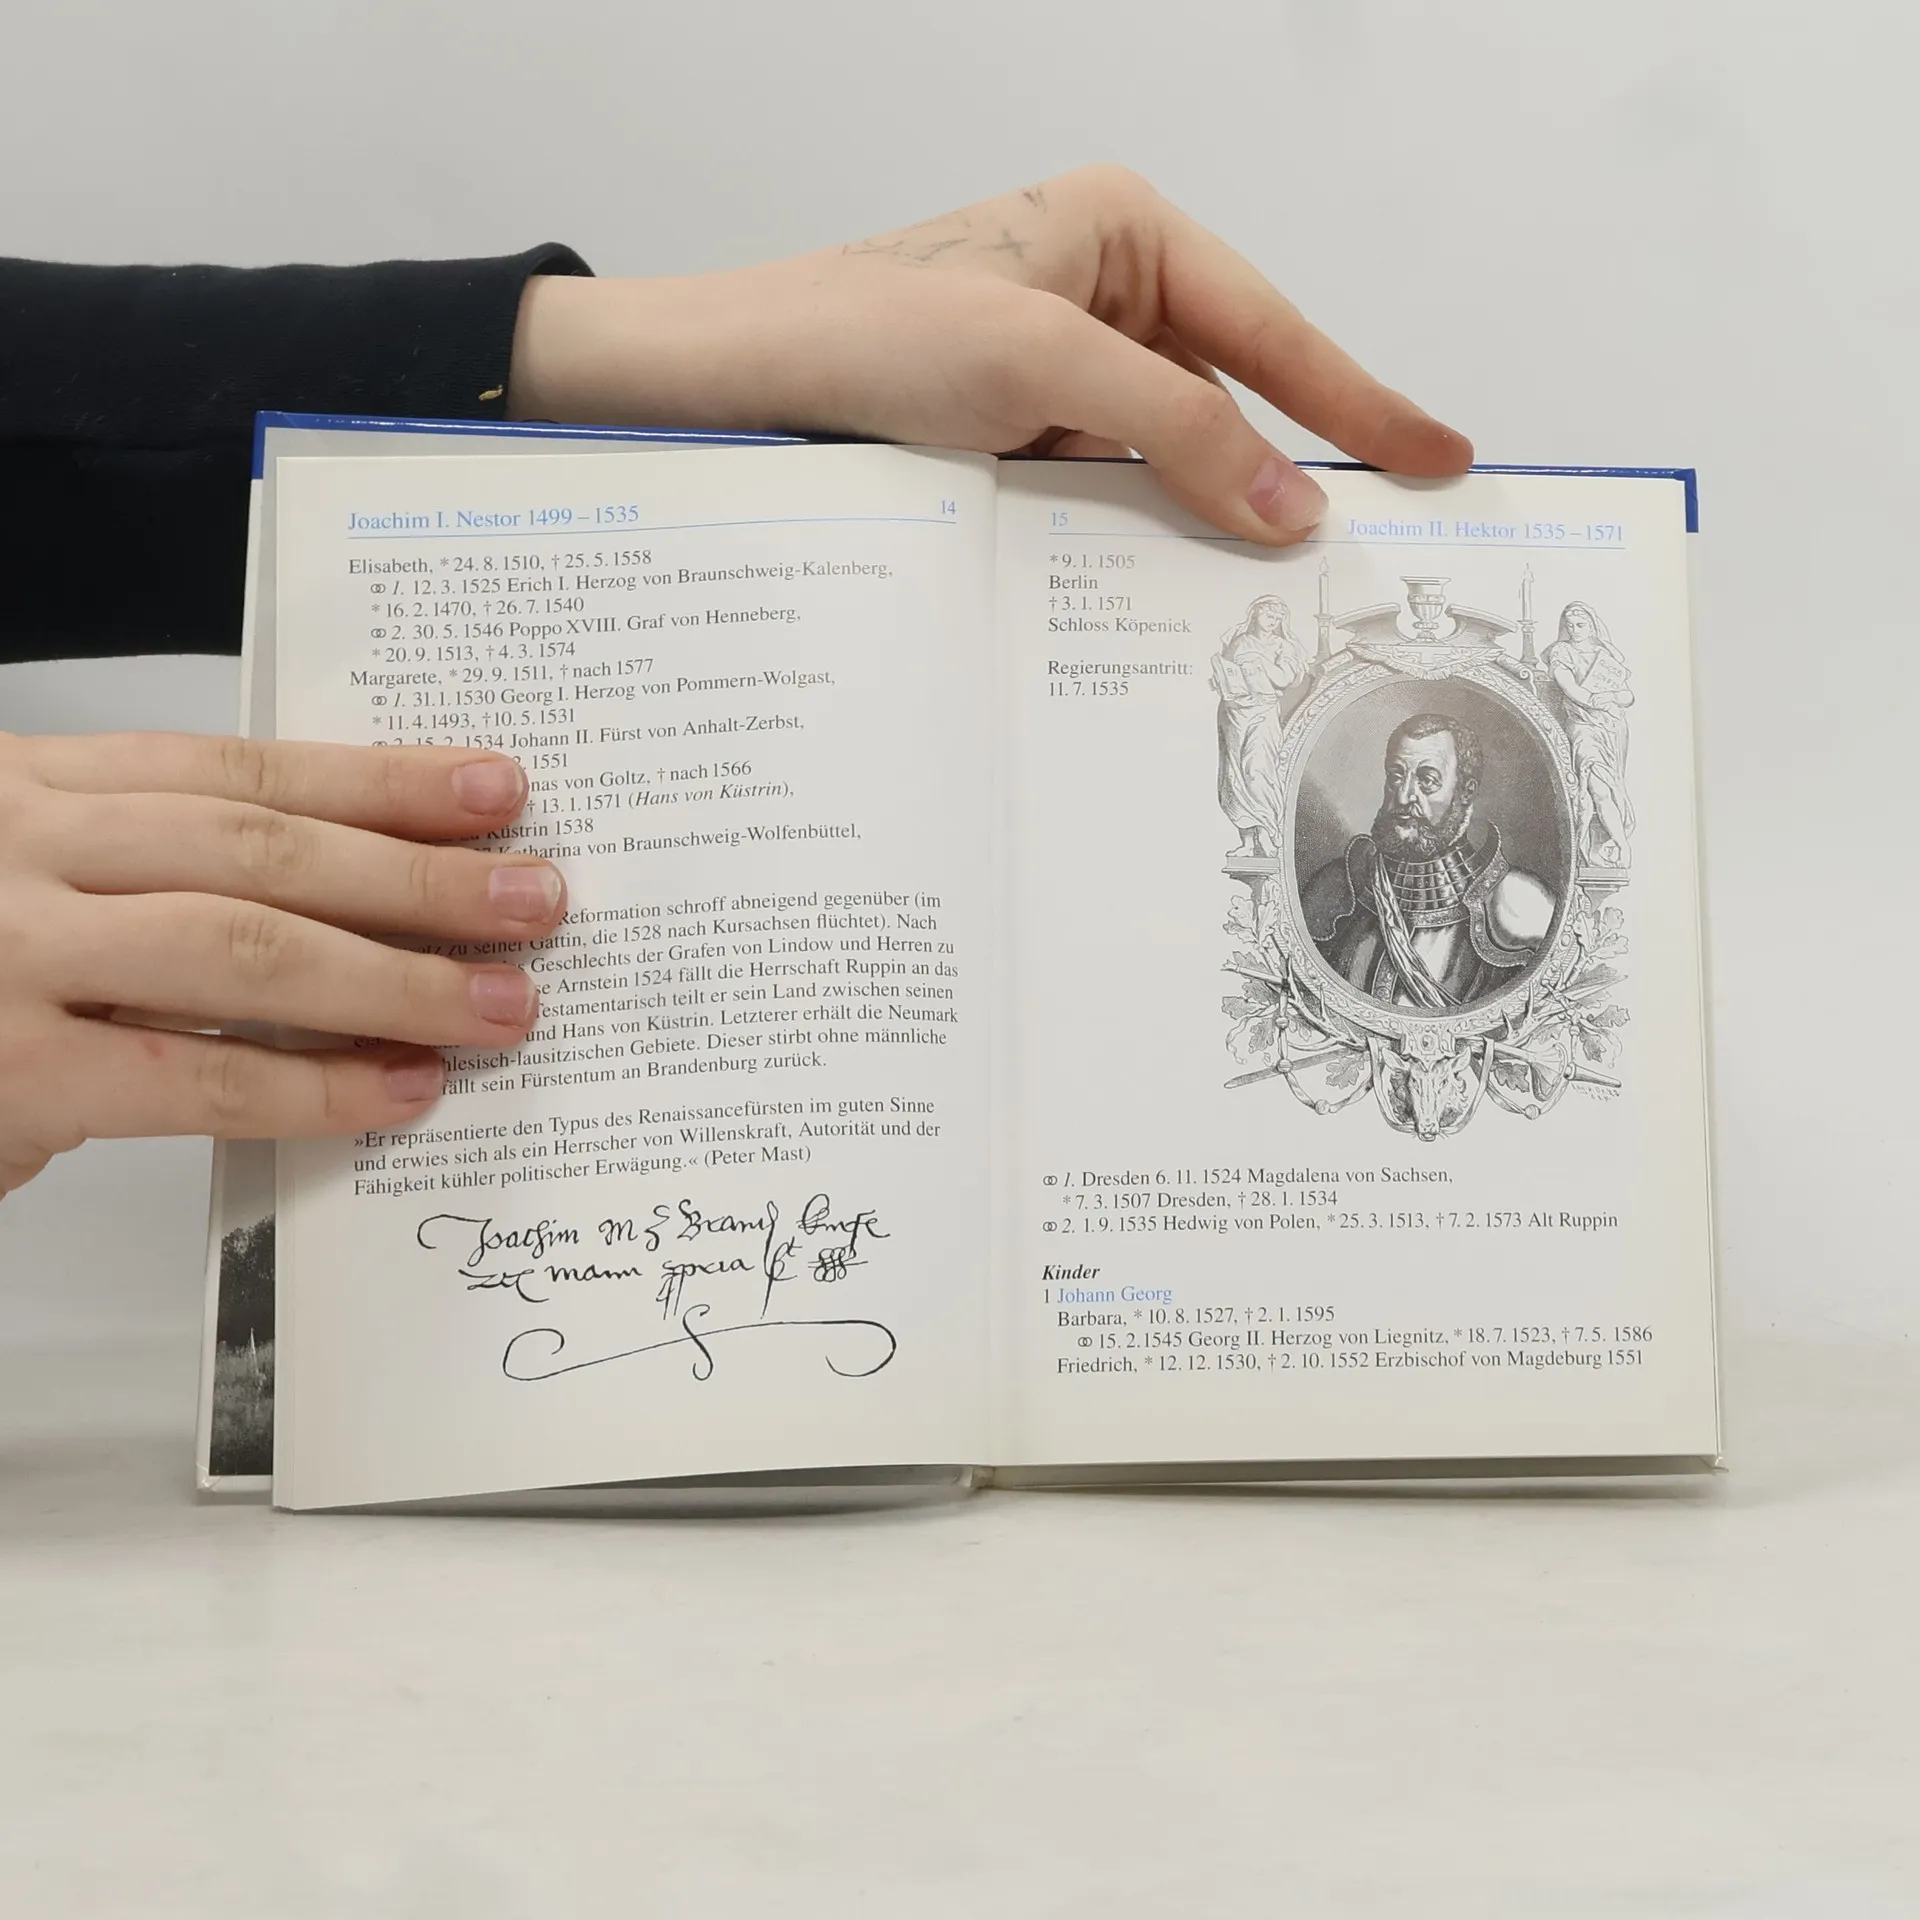 Joachim I. Nestor 1499 – 1535
14
Elisabeth, * 24. 8. 1510, † 25. 5. 1558
⚭ 1. 12. 3. 1525 Erich I. Herzog von Braunschweig-Kalenberg,
* 16. 2. 1470, † 26. 7. 1540
⚭ 2. 30. 5. 1546 Poppo XVIII. Graf von Henneberg,
* 20. 9. 1513, † 4. 3. 1574
Margarete, * 29. 9. 1511, † nach 1577
⚭ 1. 31. 1. 1530 Georg I. Herzog von Pommern-Wolgast,
* 11. 4. 1493, † 10. 5. 1531
⚭ 2. 15. 2. 1534 Johann II. Fürst von Anhalt-Zerbst,
1551
von Goltz, † nach 1566
† 13. 1. 1571 (Hans von Küstrin),
Küstrin 1538
Katharina von Braunschweig-Wolfenbüttel,
Reformation schroff abneigend gegenüber (im
zu seiner Gattin, die 1528 nach Kursachsen flüchtet). Nach
Geschlechts der Grafen von Lindow und Herren zu
Arnstein 1524 fällt die Herrschaft Ruppin an das
Testamentarisch teilt er sein Land zwischen seinen
und Hans von Küstrin. Letzterer erhält die Neumark
hlesisch-lausitzischen Gebiete. Dieser stirbt ohne männliche
fällt sein Fürstentum an Brandenburg zurück.
»Er repräsentierte den Typus des Renaissancefürsten im guten Sinne
und erwies sich als ein Herrscher von Willenskraft, Autorität und der
Fähigkeit kühler politischer Erwägung.« (Peter Mast)
Joachim
15
Joachim II. Hektor 1535 – 1571
* 9. 1. 1505
Berlin
† 3. 1. 1571
Schloss Köpenick
Regierungsantritt:
11. 7. 1535
⚭ 1. Dresden 6. 11. 1524 Magdalena von Sachsen,
* 7. 3. 1507 Dresden, † 28. 1. 1534
⚭ 2. 1. 9. 1535 Hedwig von Polen, * 25. 3. 1513, † 7. 2. 1573 Alt Ruppin
Kinder
1 Johann Georg
Barbara, * 10. 8. 1527, † 2. 1. 1595
⚭ 15. 2. 1545 Georg II. Herzog von Liegnitz, * 18. 7. 1523, † 7. 5. 1586
Friedrich, * 12. 12. 1530, † 2. 10. 1552 Erzbischof von Magdeburg 1551